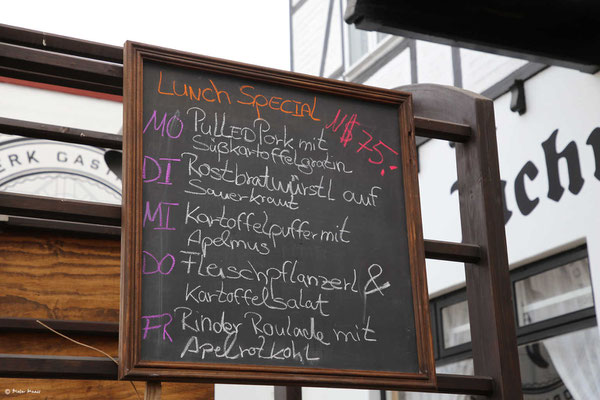 Lunch Special N$75.-
MO Pulled Pork mit
Süßkartoffelgratin
DI Rostbratwürstl auf
Sauerkraut
MI Kartoffelpuffer mit
Apelmus
DO Fleischpflanzerl &
Kartoffelsalat
FR Rinder Roulade mit
Apelrotkohl
ERK GAST
© Peter